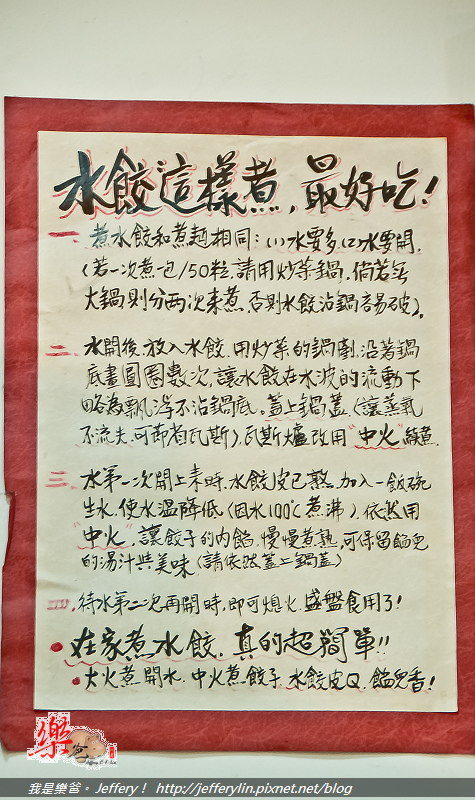 水餃這樣煮,最好吃!
一、煮水餃和煮麵相同:(1)水要多,(2)水要開.
(若一次煮一包/50粒,請用炒菜鍋,倘若無
大鍋則分兩次來煮,否則水餃沾鍋容易破)。
二、水開後,放入水餃,用炒菜的鍋剷,沿著鍋
底畫圓圈數次,讓水餃在水波的流動下
略為飄浮不沾鍋底。蓋上鍋蓋(讓蒸氣
不流失,可節省瓦斯),瓦斯爐改用"中火"續煮.
三、水第一次開上來時,水餃皮已熟,加入一飯碗
生水,使水溫降低(因水100℃煮沸),依然用
"中火",讓餃子的內餡,慢慢煮熟,可保留餡兒
的湯汁與美味(請依然蓋上鍋蓋)
四、待水第二次再開時,即可熄火,盛盤食用了!
●在家煮水餃,真的超簡單!!
●大火煮開水,中火煮餃子,水餃皮Q,餡兒香!
樂爸
我是樂爸。Jeffery! http://jefferylin.pixnet.net/blog